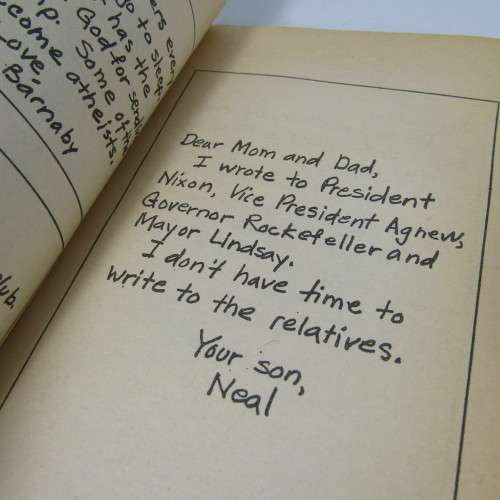 ers every
go to sleep
has the
God for sending
Some of the
come atheists.
Love,
Barnaby
Dear Mom and Dad,
I wrote to President
Nixon, Vice President Agnew,
Governor Rockefeller and
Mayor Lindsay.
I don't have time to
write to the relatives.
Your son,
Neal